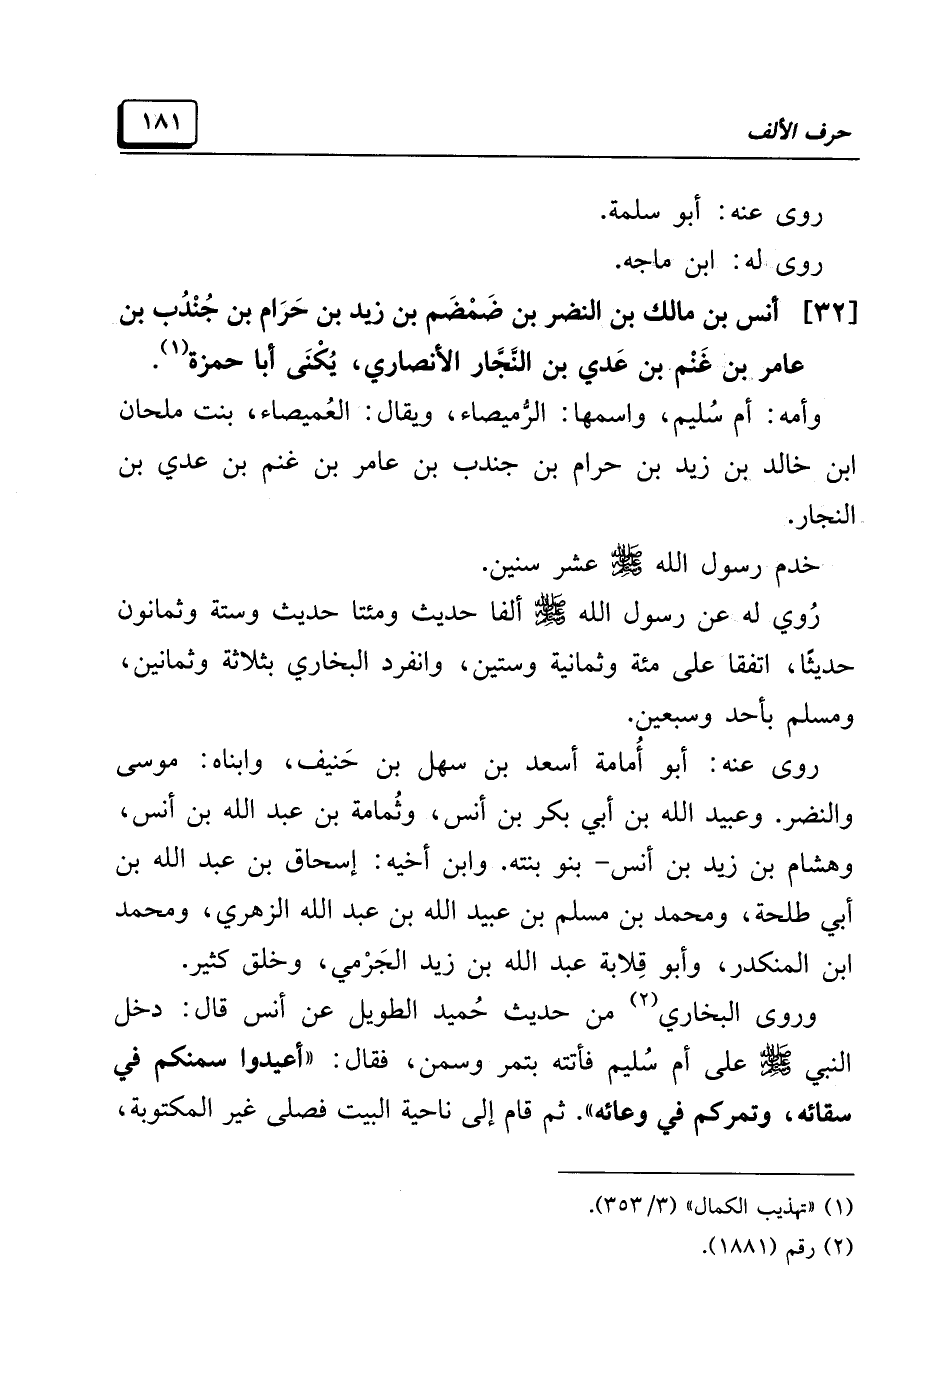 حرف الألف
١٨١
روى عنه: أبو سلمة.
روى له: ابن ماجه.
[٣٢] أنس بن مالك بن النضر بن ضَمْضَم بن زيد بن حَرَام بن جُنْدُب بن
عامر بن غَنْم بن عَدي بن النَّجَّار الأنصاري، يُكْنَى أبا حمزة(١).
وأمه: أم سُليم، واسمها: الرُّميصاء، ويقال: العُميصاء، بنت ملحان
ابن خالد بن زيد بن حرام بن جندب بن عامر بن غنم بن عدي بن
النجار.
خدم رسول الله ﷺ عشر سنين.
رُوي له عن رسول الله ﷺ ألفا حديث ومئتا حديث وستة وثمانون
حديثًا، اتفقا على مئة وثمانية وستين، وانفرد البخاري بثلاثة وثمانين،
ومسلم بأحد وسبعين.
روى عنه: أبو أُمامة أسعد بن سهل بن حَنيف، وابناه: موسى
والنضر. وعبيد الله بن أبي بكر بن أنس، وثُمامة بن عبد الله بن أنس،
وهشام بن زيد بن أنس- بنو بنته. وابن أخيه: إسحاق بن عبد الله بن
أبي طلحة، ومحمد بن مسلم بن عبيد الله بن عبد الله الزهري، ومحمد
ابن المنكدر، وأبو قِلابة عبد الله بن زيد الجَرْمي، وخلق كثير.
وروى البخاري(٢) من حديث حُميد الطويل عن أنس قال: دخل
النبي ﷺ على أم سُليم فأتته بتمر وسمن، فقال: «أعيدوا سمنكم في
سقائه، وتمركم في وعائه». ثم قام إلى ناحية البيت فصلى غير المكتوبة،
(١) «تهذيب الكمال» (٣/ ٣٥٣).
(٢) رقم (١٨٨١).